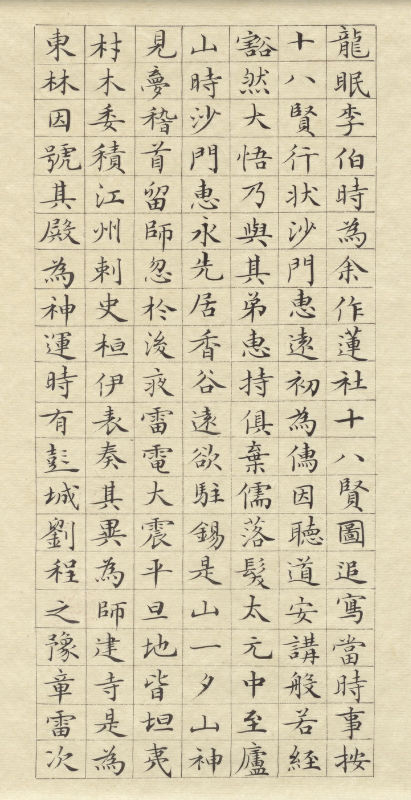 龍眠李伯時為余作蓮社十八賢圖追寫當時事按
十八賢行狀沙門惠遠初為儒因聽道安講般若経
豁然大悟乃與其弟惠持俱棄儒落髮太元中至廬
山時沙門惠永先居香谷遠欲駐錫是山一夕山神
見夢稽首留師忽於後夜雷電大震平旦地皆坦夷
材木委積江州刺史桓伊表奏其異為師建寺是為
東林因號其殿為神運時有彭城劉程之豫章雷次